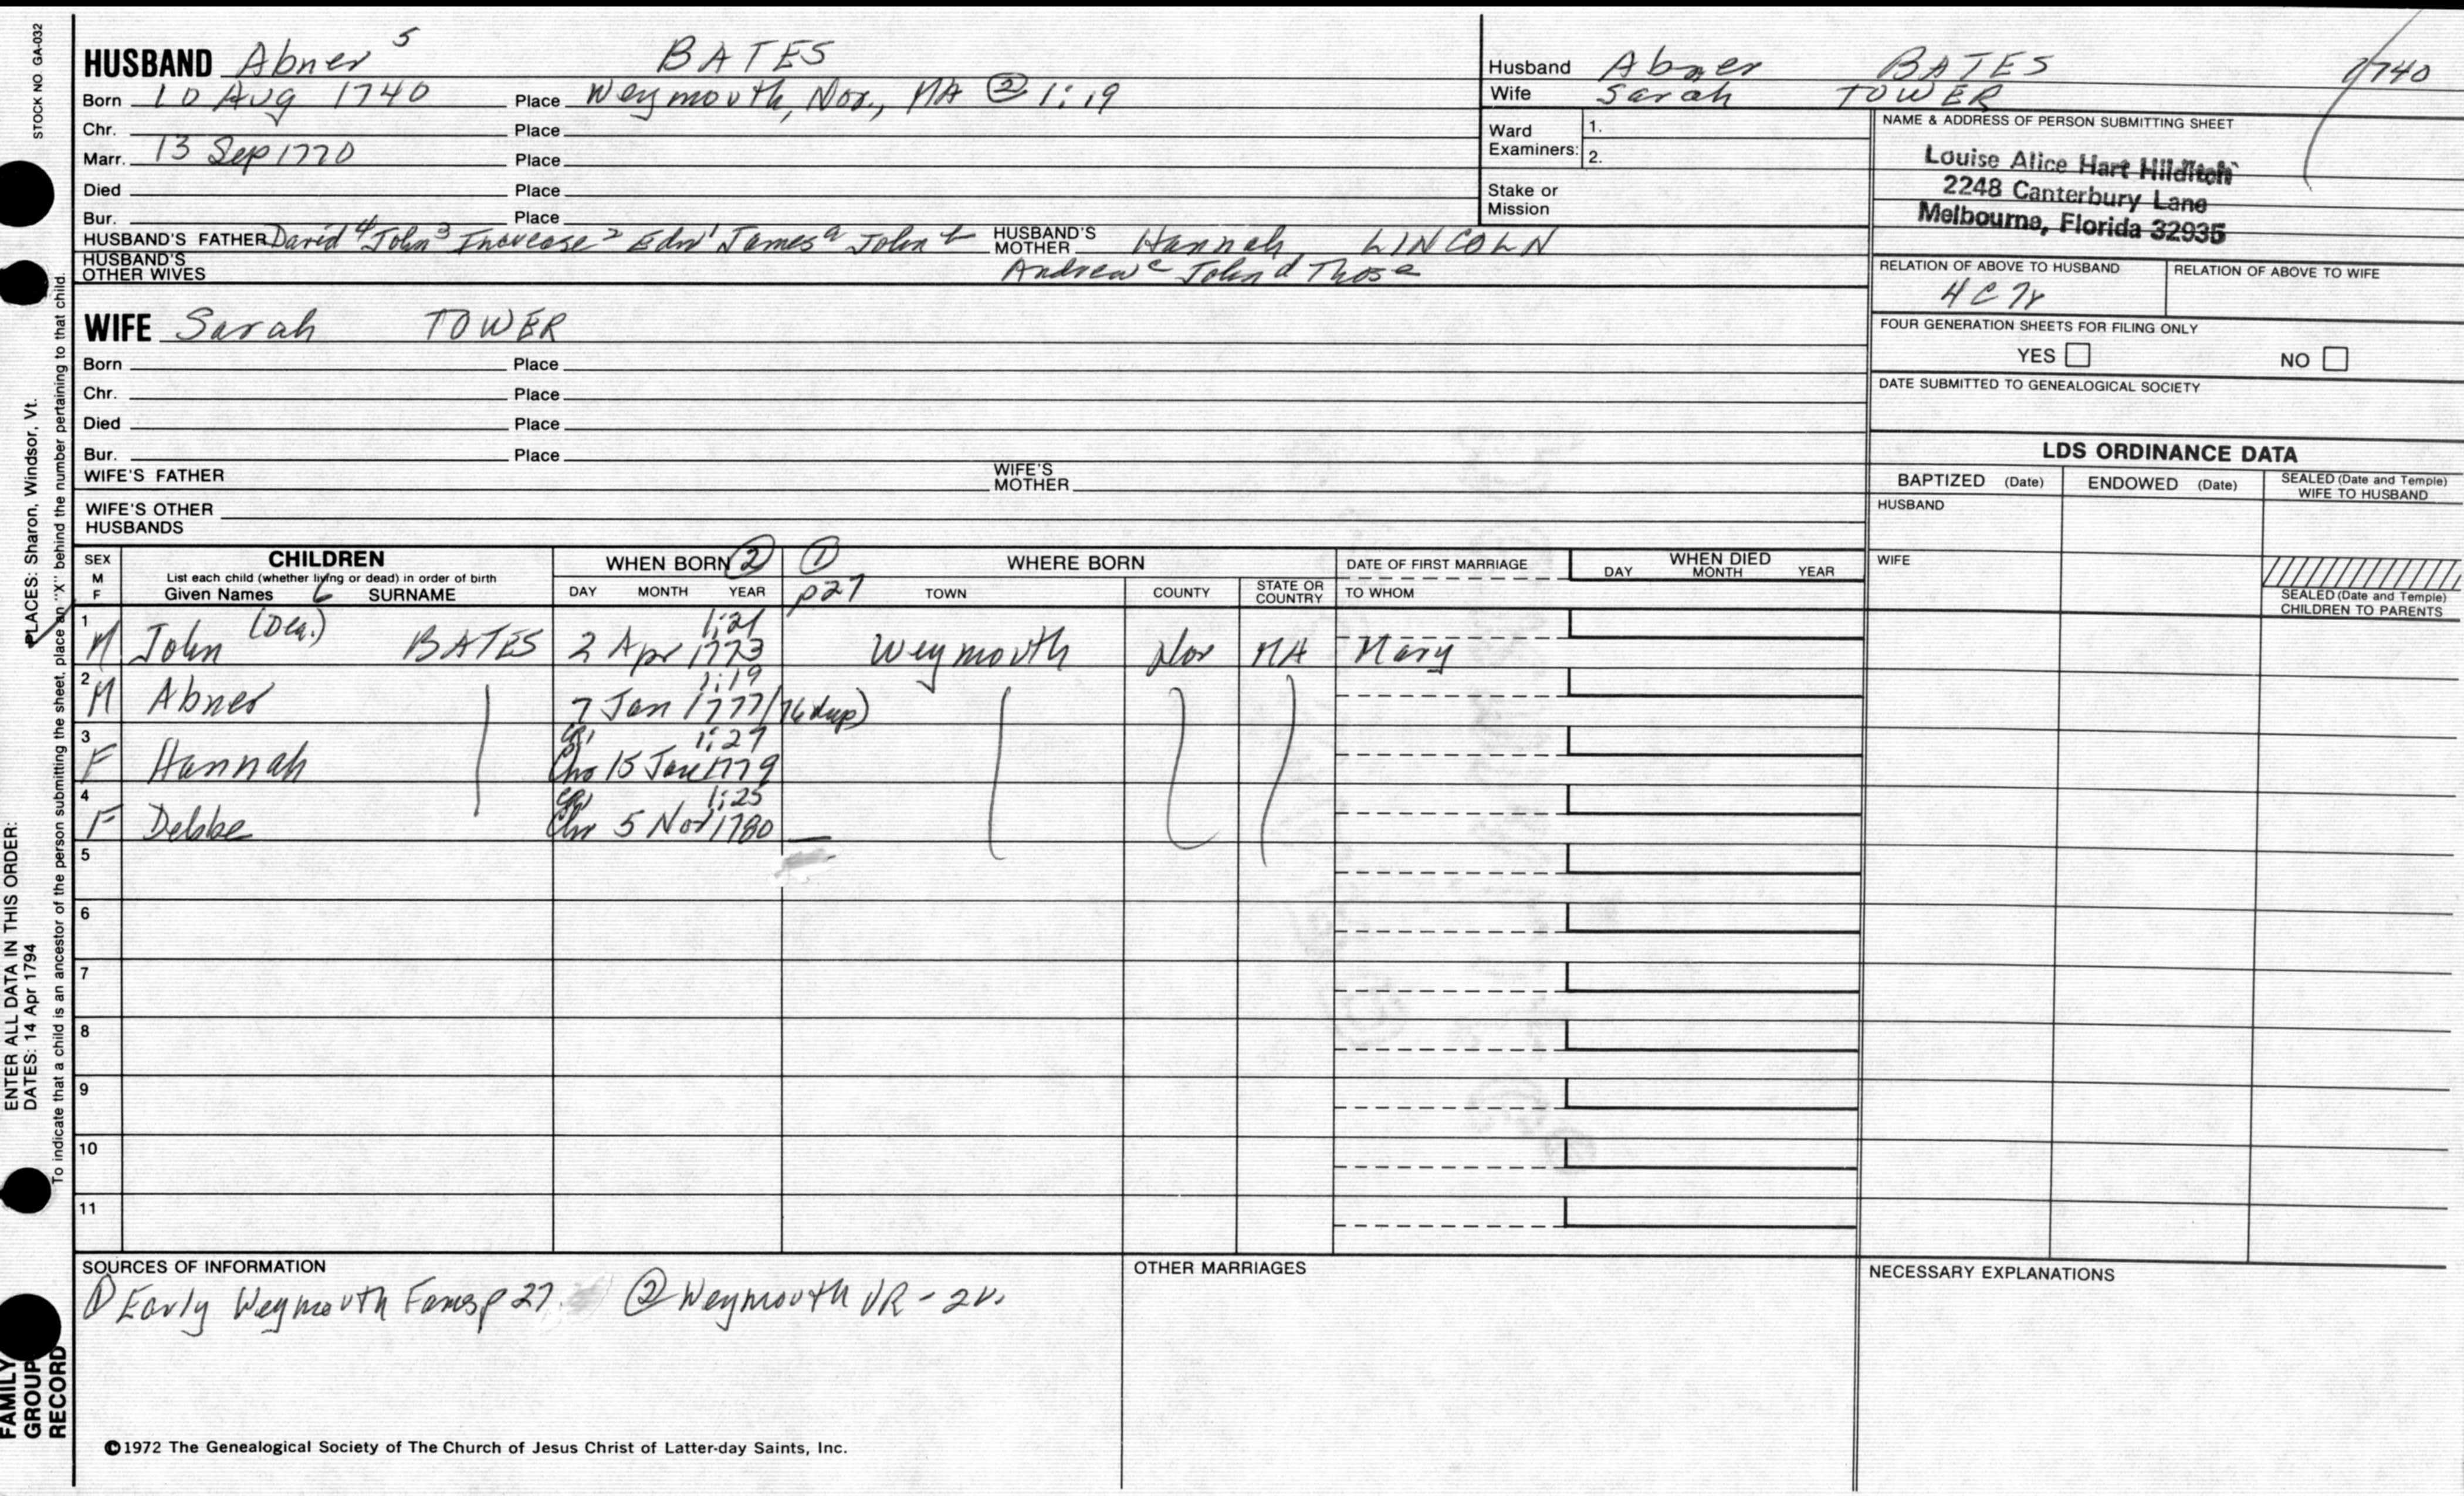 STOCK NO GA-032
HUSBAND Abner 5 BATES
Born 10 Aug 1740 Place Weymouth, Nor., MA ② 1:19
Chr. Place
Marr. 13 Sep 1770 Place
Died Place
Bur. Place
HUSBAND'S FATHER David 4 John 3 Increase 2 Edw 1 James a John b HUSBAND'S MOTHER Hannah LINCOLN
HUSBAND'S OTHER WIVES Andrew c John d Thos e
WIFE Sarah TOWER
Born Place
Chr. Place
Died Place
Bur. Place
WIFE'S FATHER WIFE'S MOTHER
WIFE'S OTHER HUSBANDS
Husband Abner BATES 1740
Wife Sarah TOWER
Ward Examiners: 1.
2.
Stake or Mission
NAME & ADDRESS OF PERSON SUBMITTING SHEET
Louise Alice Hart Hilditch
2248 Canterbury Lane
Melbourne, Florida 32935
RELATION OF ABOVE TO HUSBAND RELATION OF ABOVE TO WIFE
FOUR GENERATION SHEETS FOR FILING ONLY
YES NO
DATE SUBMITTED TO GENEALOGICAL SOCIETY
LDS ORDINANCE DATA
BAPTIZED (Date) ENDOWED (Date) SEALED (Date and Temple) WIFE TO HUSBAND
HUSBAND
WIFE
SEALED (Date and Temple) CHILDREN TO PARENTS
SEX M F CHILDREN WHEN BORN ② ① WHERE BORN DATE OF FIRST MARRIAGE WHEN DIED
List each child (whether living or dead) in order of birth
Given Names 6 SURNAME DAY MONTH YEAR p27 TOWN COUNTY STATE OR COUNTRY TO WHOM DAY MONTH YEAR
1 M John (Dea.) BATES 2 Apr 1773 1:21 Weymouth Nor MA Mary
2 M Abner 7 Jan 1777/76 dup) 1:19
3 F Hannah Chr 15 Jan 1779
4 F Debbe Chr 5 Nov 1780 1:25
5
6
7
8
9
10
11
SOURCES OF INFORMATION
① Early Weymouth Fams p 27. ② Weymouth VR - 2v.
OTHER MARRIAGES
NECESSARY EXPLANATIONS
©1972 The Genealogical Society of The Church of Jesus Christ of Latter-day Saints, Inc.
ENTER ALL DATA IN THIS ORDER:
DATES: 14 Apr 1794 PLACES: Sharon, Windsor, Vt.
To indicate that a child is an ancestor of the person submitting the sheet, place an "X" behind the number pertaining to that child.
FAMILY GROUP RECORD